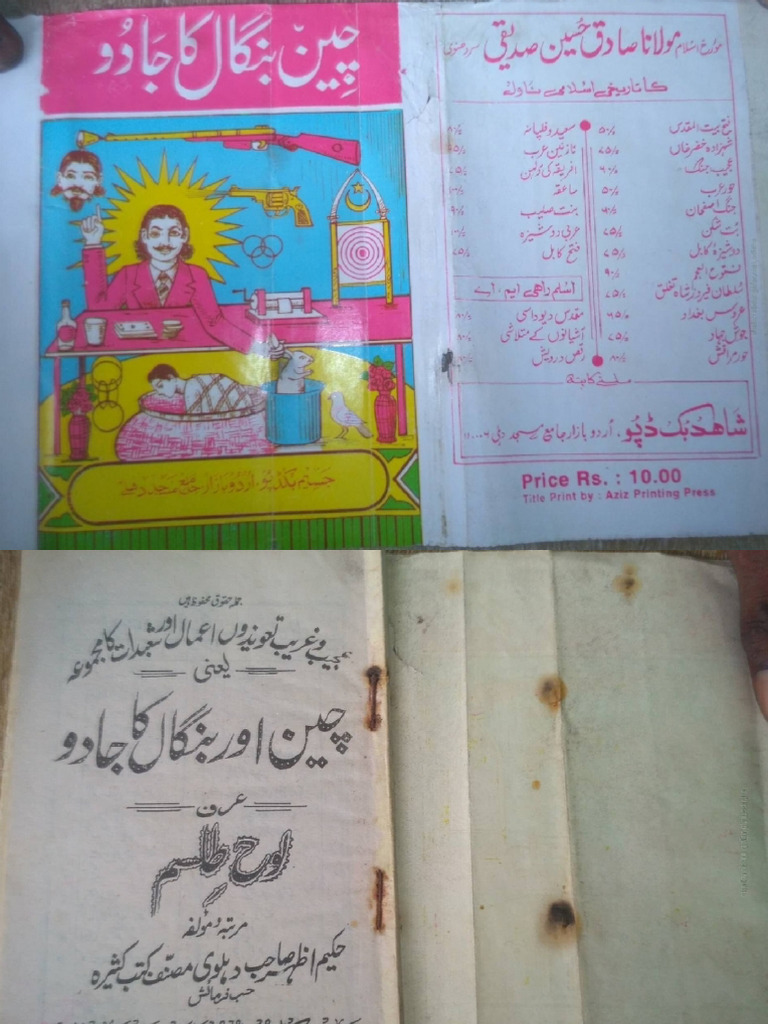 چین بنگال کا جادو
جسیم بکڈپو، اردو بازار جامع مسجد دہلی
مورخ اسلام مولانا صادق حسین صدیقی سردھنوی
کے تاریخی اسلامی ناول
فتح بیت المقدس ۵۰/- سعید و فلپانہ
شہزادہ خضر خاں ۷۵/- نازنین عرب
عجیب جنگ ۶۰/- افریقہ کی دلہن
حور عرب ۵۰/- ساعقہ
جنگ اصفہان بنت صلیب
بت شکن ۷۵/- عربی دوشیزہ
دوشیزہ کابل ۷۵/- فتح کابل
فتوح العجم ۹۰/-
سلطان فیروز شاہ تغلق ۷۵/- اسلم راہی ایم، اے
عروس بغداد ۶۵/- مقدس دیوداسی
جوش جہاد ۷۵/- آشیانوں کے متلاشی
حور مراقش رقص درویش
ملنے کا پتہ
شاھد بک ڈپو، اُردو بازار جامع مسجد دہلی ۱۱۰۰۰۶
Price Rs. : 10.00
Title Print by : Aziz Printing Press
جملہ حقوق محفوظ ہیں
عجیب و غریب تعویذوں اعمال اور شعبدات کا مجموعہ
یعنی
چین اور بنگال کا جادو
عرف
لوح طلسم
مرتبہ و مؤلفہ
حکیم اظہر صاحب دہلوی مصنف کتب کثیرہ
حسب فرمائش